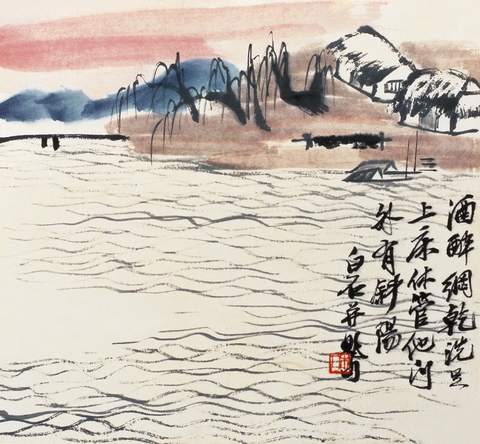 酒醉網乾洗足
上床休管他門
外有斜陽
白石并